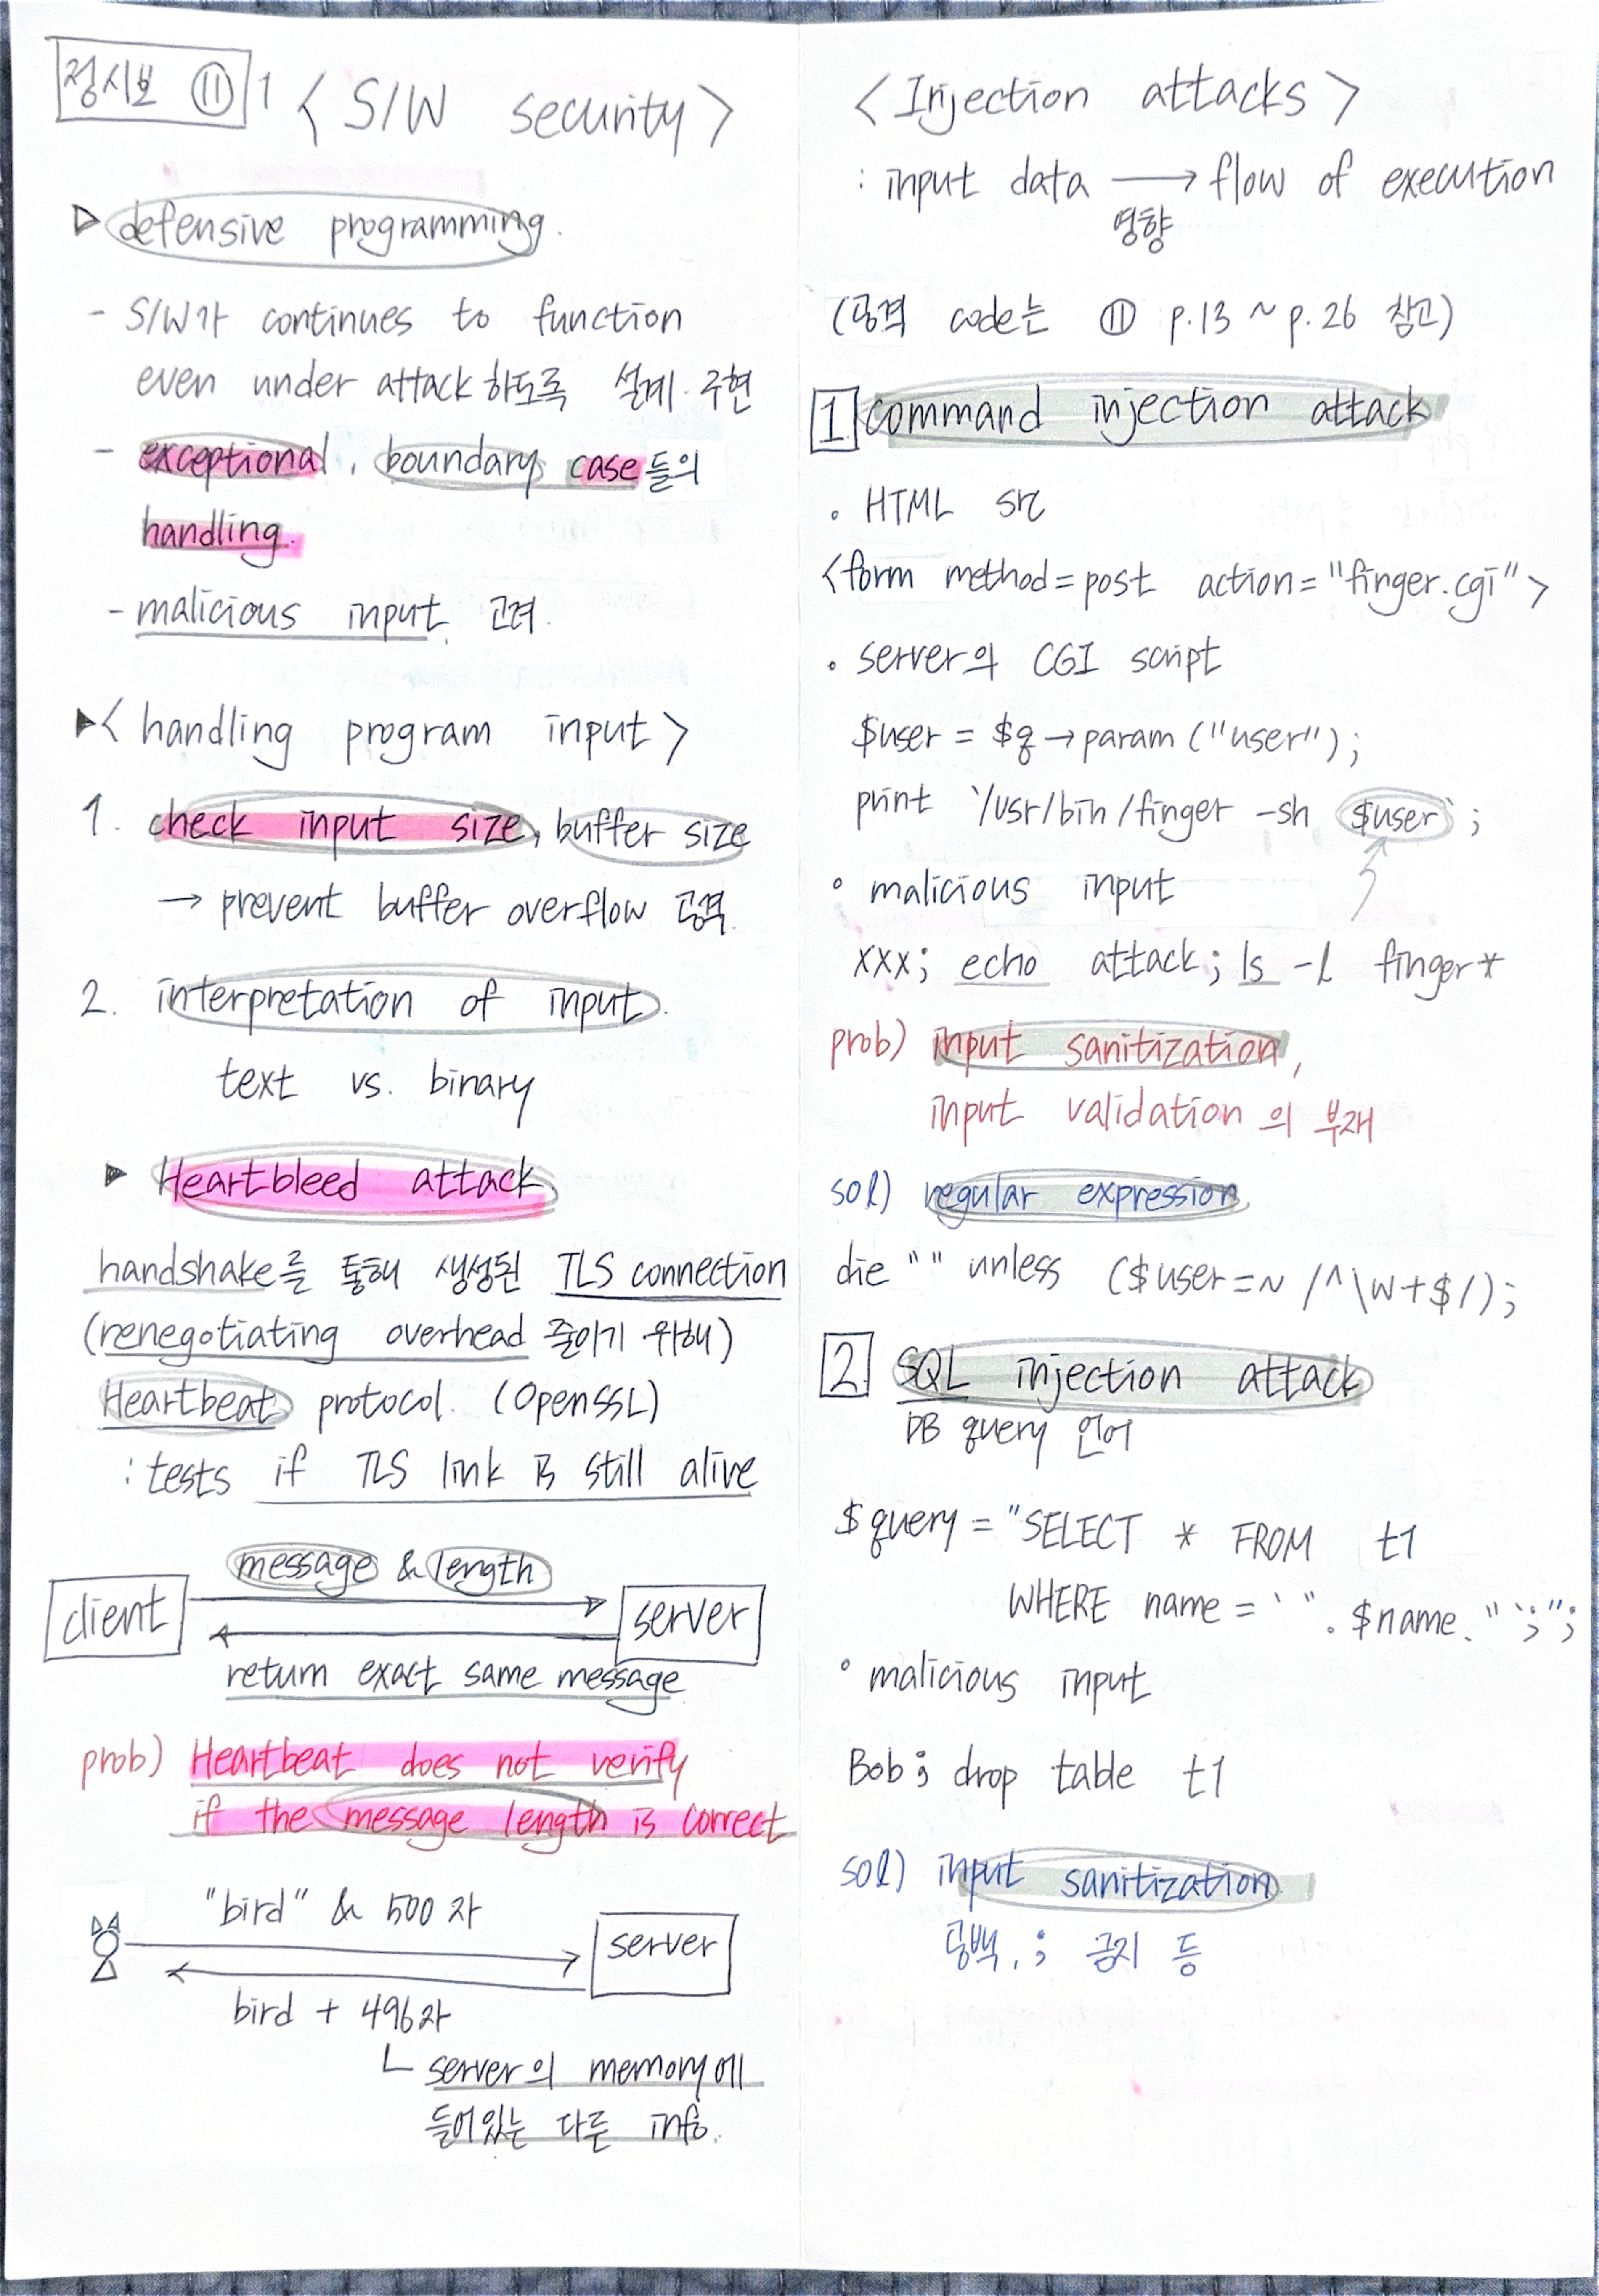 정시보 ⑪ 1 < S/W security >
▷ defensive programming.
- S/W가 continues to function
even under attack 하도록 설계·구현
- exceptional, boundary case들의
handling.
- malicious input 고려.
▶< handling program input >
1. check input size, buffer size
→ prevent buffer overflow 공격.
2. interpretation of input.
text vs. binary
▶ Heartbleed attack.
handshake를 통해 생성된 TLS connection
(renegotiating overhead 줄이기 위해)
Heartbeat protocol. (OpenSSL)
: tests if TLS link is still alive
message & length
client
server
return exact same message
prob) Heartbeat does not verify
if the message length is correct
"bird" & 500자
server
bird + 496자
└ server의 memory에
들어있는 다른 info.
< Injection attacks >
: input data → flow of execution
영향
(공격 code는 ⑪ p.13 ~ p.26 참고)
1 command injection attack
• HTML src
<form method=post action="finger.cgi">
• server의 CGI script
$user = $q→param("user");
print `/usr/bin/finger -sh $user`;
• malicious input
xxx; echo attack; ls -l finger*
prob) input sanitization,
input validation의 부재
sol) regular expression.
die "" unless ($user=~ /^\w+$/);
2 SQL injection attack
DB query 언어
$query = "SELECT * FROM t1
WHERE name = '". $name. "';";
• malicious input
Bob; drop table t1
sol) input sanitization.
공백, ; 금지 등